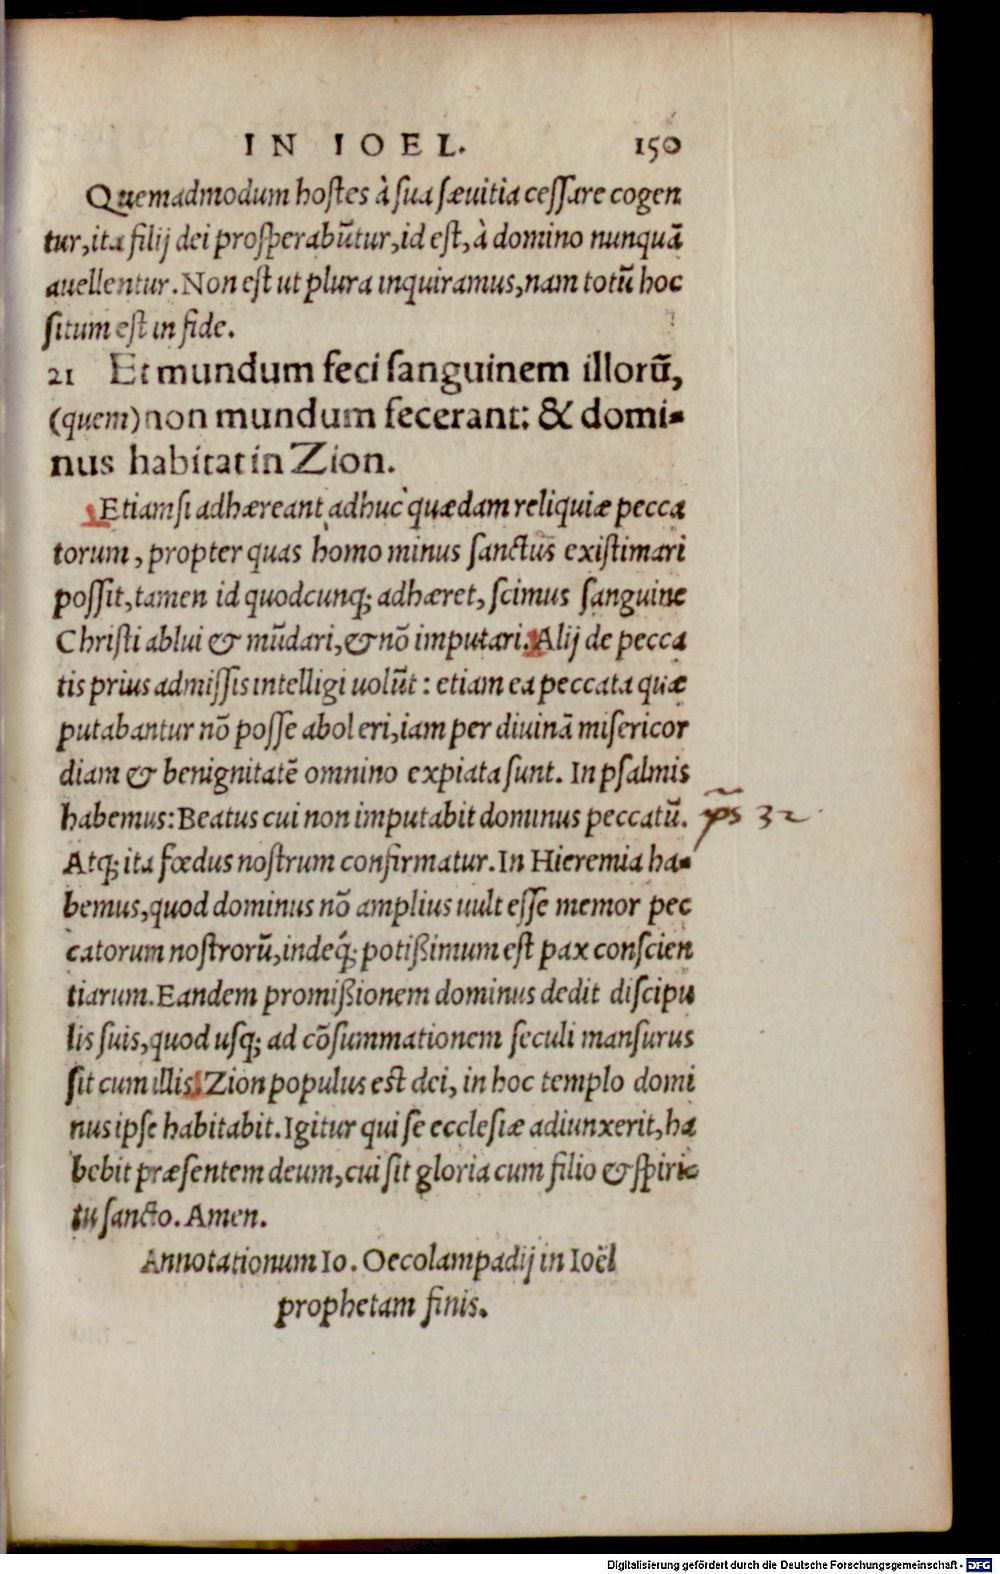 IN IOEL. 150
Quemadmodum hostes à sua sæuitia cessare cogen
tur, ita filij dei prosperabũtur, id est, à domino nunquã
auellentur. Non est ut plura inquiramus, nam totũ hoc
situm est in fide.
21 Et mundum feci sanguinem illorũ,
(quem) non mundum fecerant: & domi-
nus habitat in Zion.
Etiamsi adhæreant adhuc quædam reliquiæ pecca
torum, propter quas homo minus sanctus existimari
possit, tamen id quodcunq; adhæret, scimus sanguine
Christi ablui & mũdari, & nõ imputari. Alij de pecca
tis prius admissis intelligi uolũt: etiam ea peccata quæ
putabantur nõ posse aboleri, iam per diuinã misericor
diam & benignitatẽ omnino expiata sunt. In psalmis
habemus: Beatus cui non imputabit dominus peccatũ. ps 32
Atq; ita fœdus nostrum confirmatur. In Hieremia ha-
bemus, quod dominus nõ amplius uult esse memor pec
catorum nostrorũ, indeq́; potißimum est pax conscien
tiarum. Eandem promißionem dominus dedit discipu
lis suis, quod usq; ad cõsummationem seculi mansurus
sit cum illis. Zion populus est dei, in hoc templo domi
nus ipse habitabit. Igitur qui se ecclesiæ adiunxerit, ha
bebit præsentem deum, cui sit gloria cum filio & spiri-
tu sancto. Amen.
Annotationum Io. Oecolampadij in Ioël
prophetam finis.
Digitalisierung gefördert durch die Deutsche Forschungsgemeinschaft - DFG